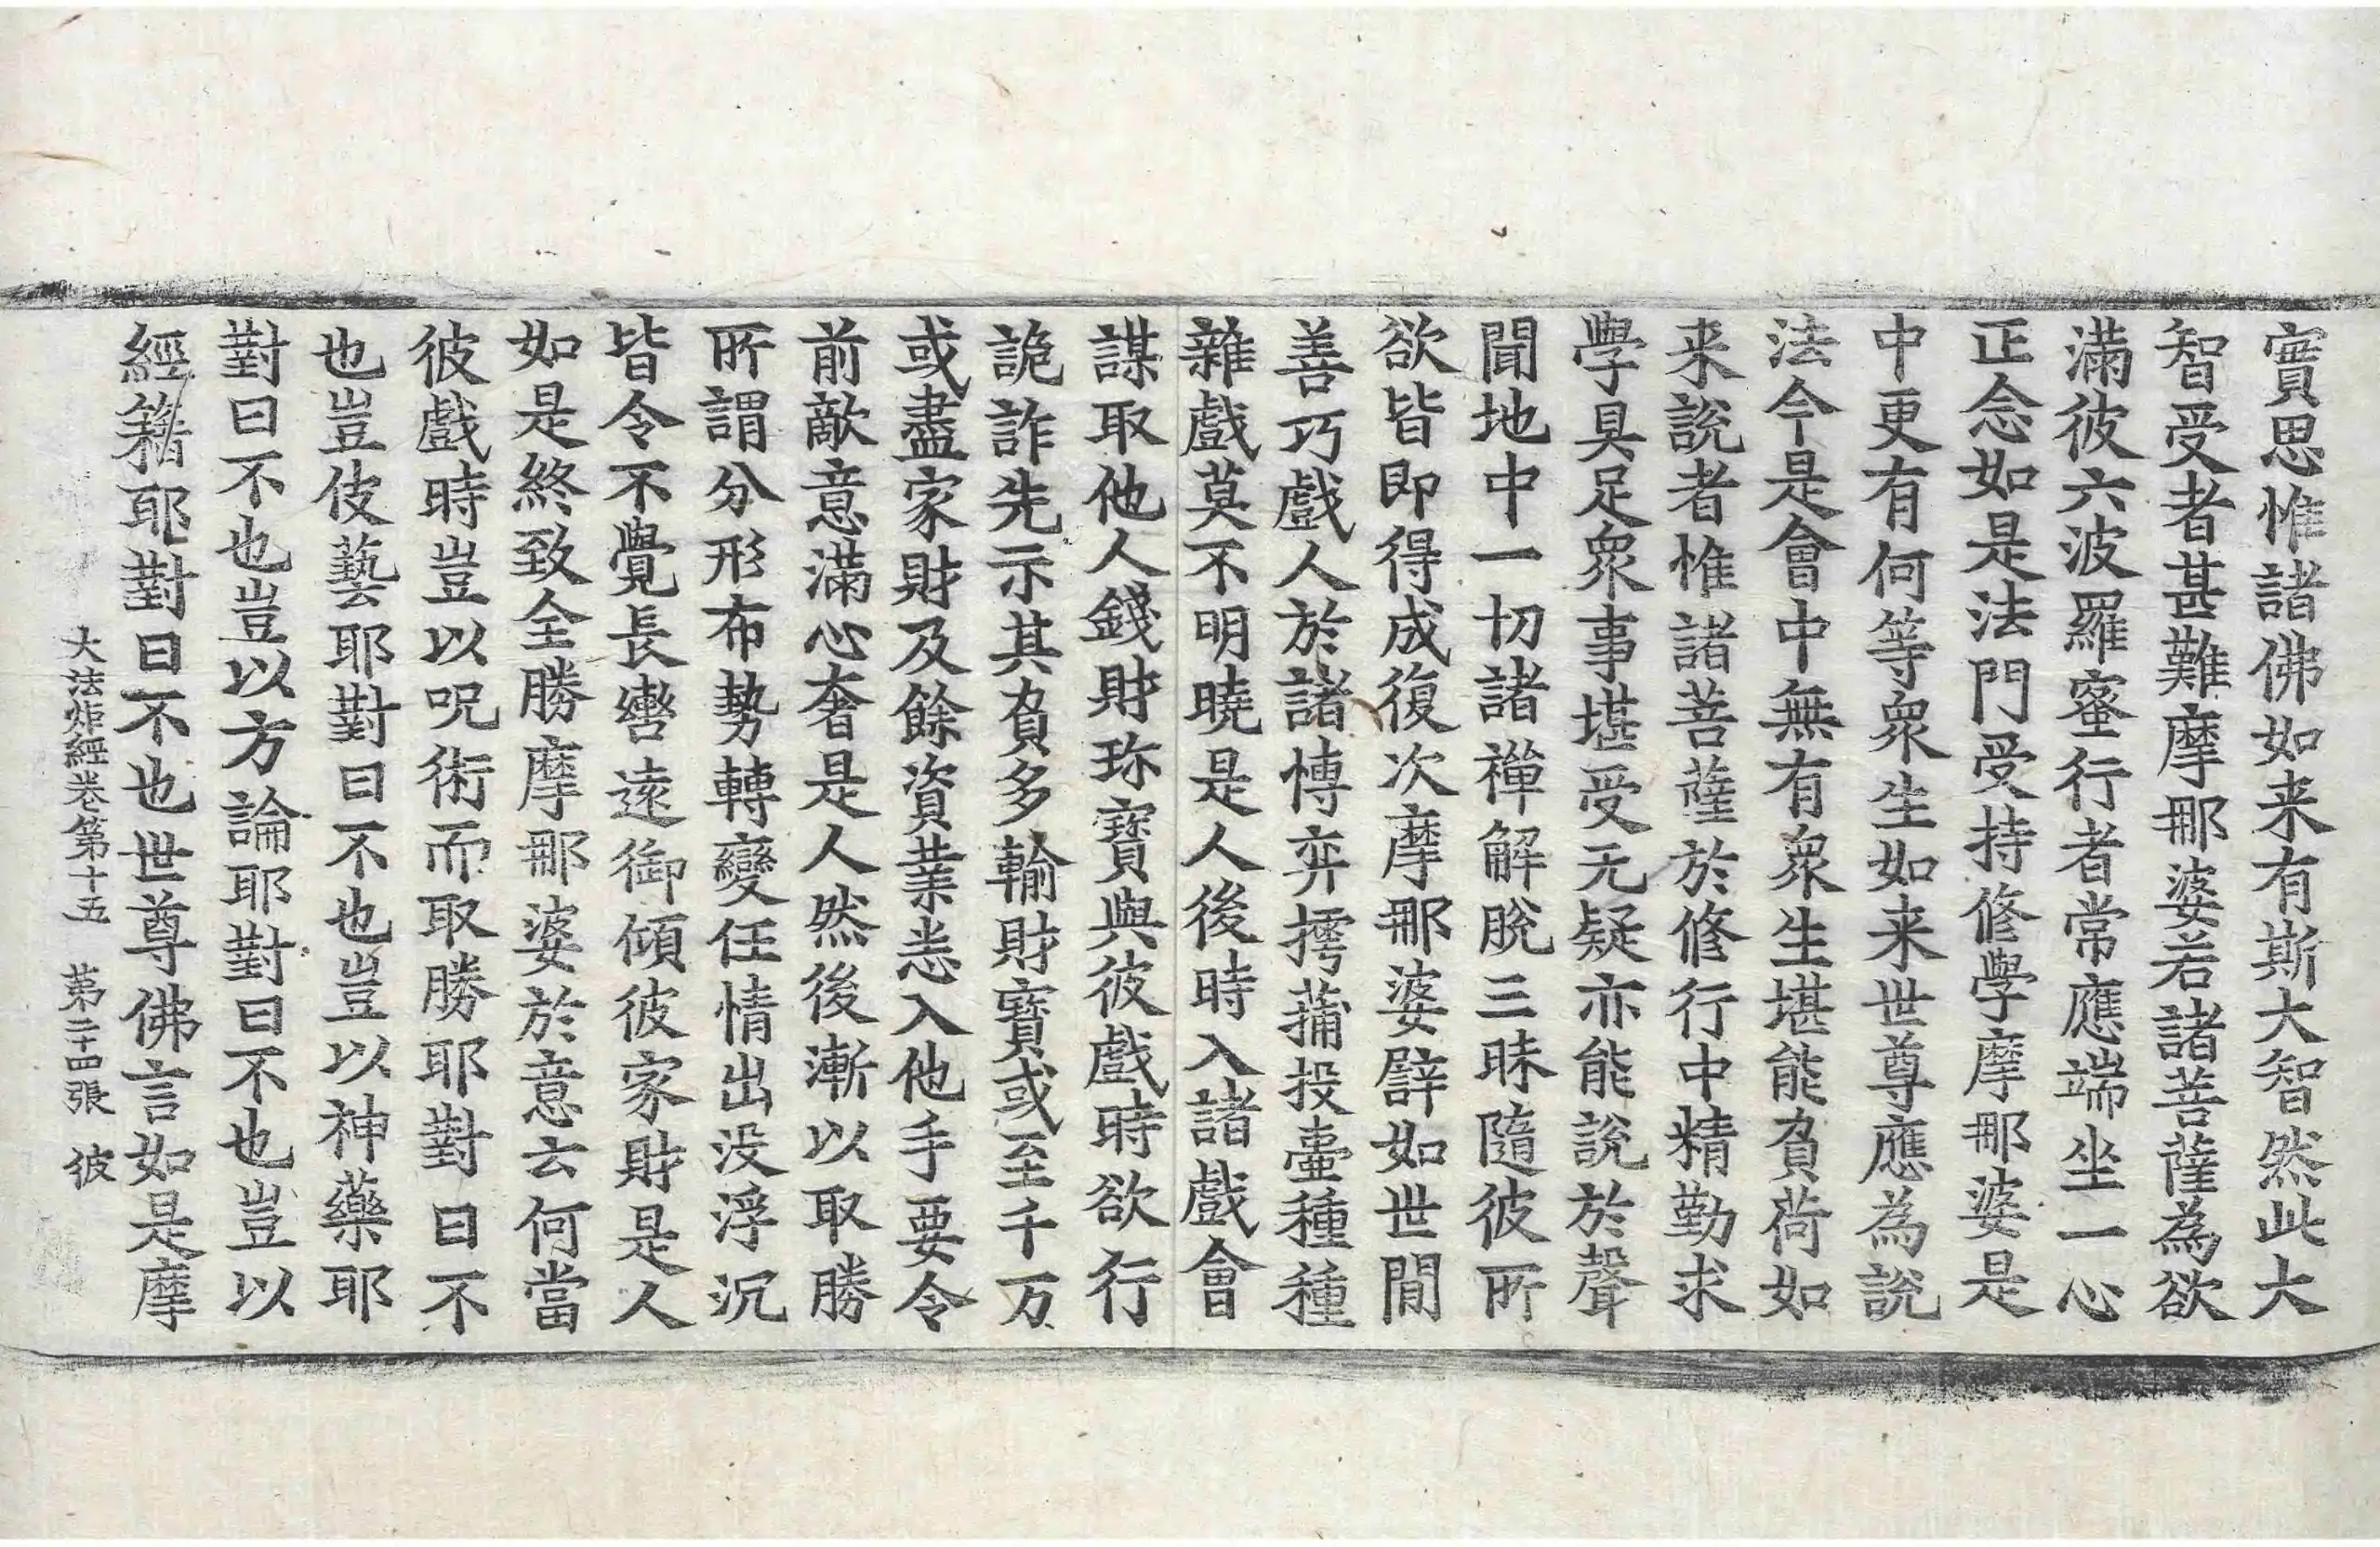 實思惟諸佛如来有斯大智然此大
智受者甚難摩那婆若諸菩薩為欲
滿彼六波羅蜜行者常應端坐一心
正念如是法門受持修學摩那婆是
中更有何等眾生如来世尊應為說
法今是會中無有眾生堪能負荷如
来說者惟諸菩薩於修行中精勤求
學具足眾事堪受无疑亦能說於聲
聞地中一切諸禪解脫三昧隨彼所
欲皆即得成復次摩那婆辟如世間
善巧戲人於諸愽弈摴蒱投壷種種
雜戲莫不明曉是人後時入諸戲會
謀取他人錢財珎寶與彼戲時欲行
詭詐先示其負多輸財寶或至千万
或盡家財及餘資業悉入他手要令
前敵意滿心奢是人然後漸以取勝
所謂分形布勢轉變任情出没浮沉
皆令不覺長轡遠御傾彼家財是人
如是終致全勝摩那婆於意云何當
彼戲時豈以呪術而取勝耶對曰不
也豈伎藝耶對曰不也豈以神藥耶
對曰不也豈以方論耶對曰不也豈以
經籍耶對曰不也世尊佛言如是摩
大法炬經卷第十五　第二十四張　彼